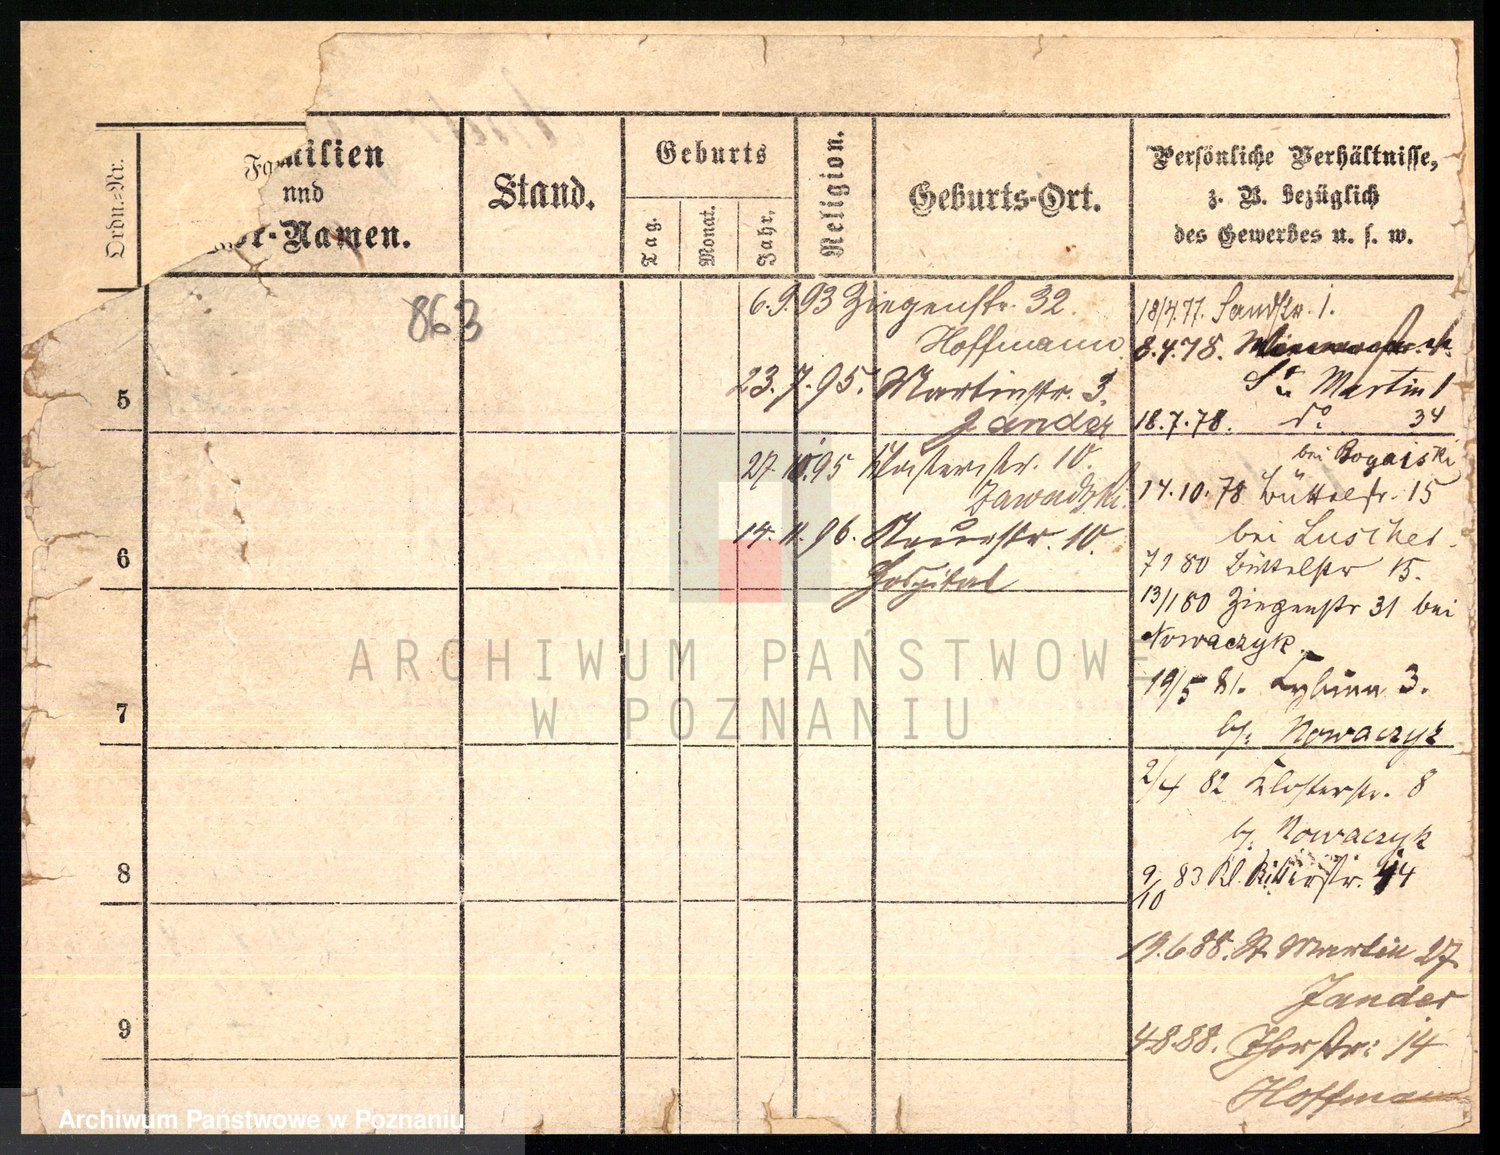 Ordn.=Nr.
Familien
und
Vor-Namen.
Stand.
Geburts
Tag.
Monat.
Jahr.
Religion.
Geburts-Ort.
Persönliche Verhältnisse,
z. B. bezüglich
des Gewerbes u. s. w.
863
6.9.93 Ziegenstr. 32.
Hoffmann
23.7.95. Martinstr. 3.
Jander
27.10.95 Klosterstr. 10.
Zawadzki.
14.11.96. Neuestr. 10.
Hospital
18/4.77. Sandstr. 1.
8.4.78.
St. Martin 1
18.7.78. do 34
bei Bogajski
14.10.78 Büttelstr. 15
bei Luscher.
80 Büttelstr 15.
13/1 80 Ziegenstr 31 bei
Nowaczyk.
19/5 81. Cybina 3.
b/. Nowaczyk
2/4 82 Klosterstr. 8
b/. Nowaczyk
9/10 83 Kl. Ritterstr. 14
19.6.88. St. Martin 27
Jander
4.8.88. Thorstr: 14
Hoffmann
5
6
7
8
9
ARCHIWUM PAŃSTWOWE
W POZNANIU
Archiwum Państwowe w Poznaniu